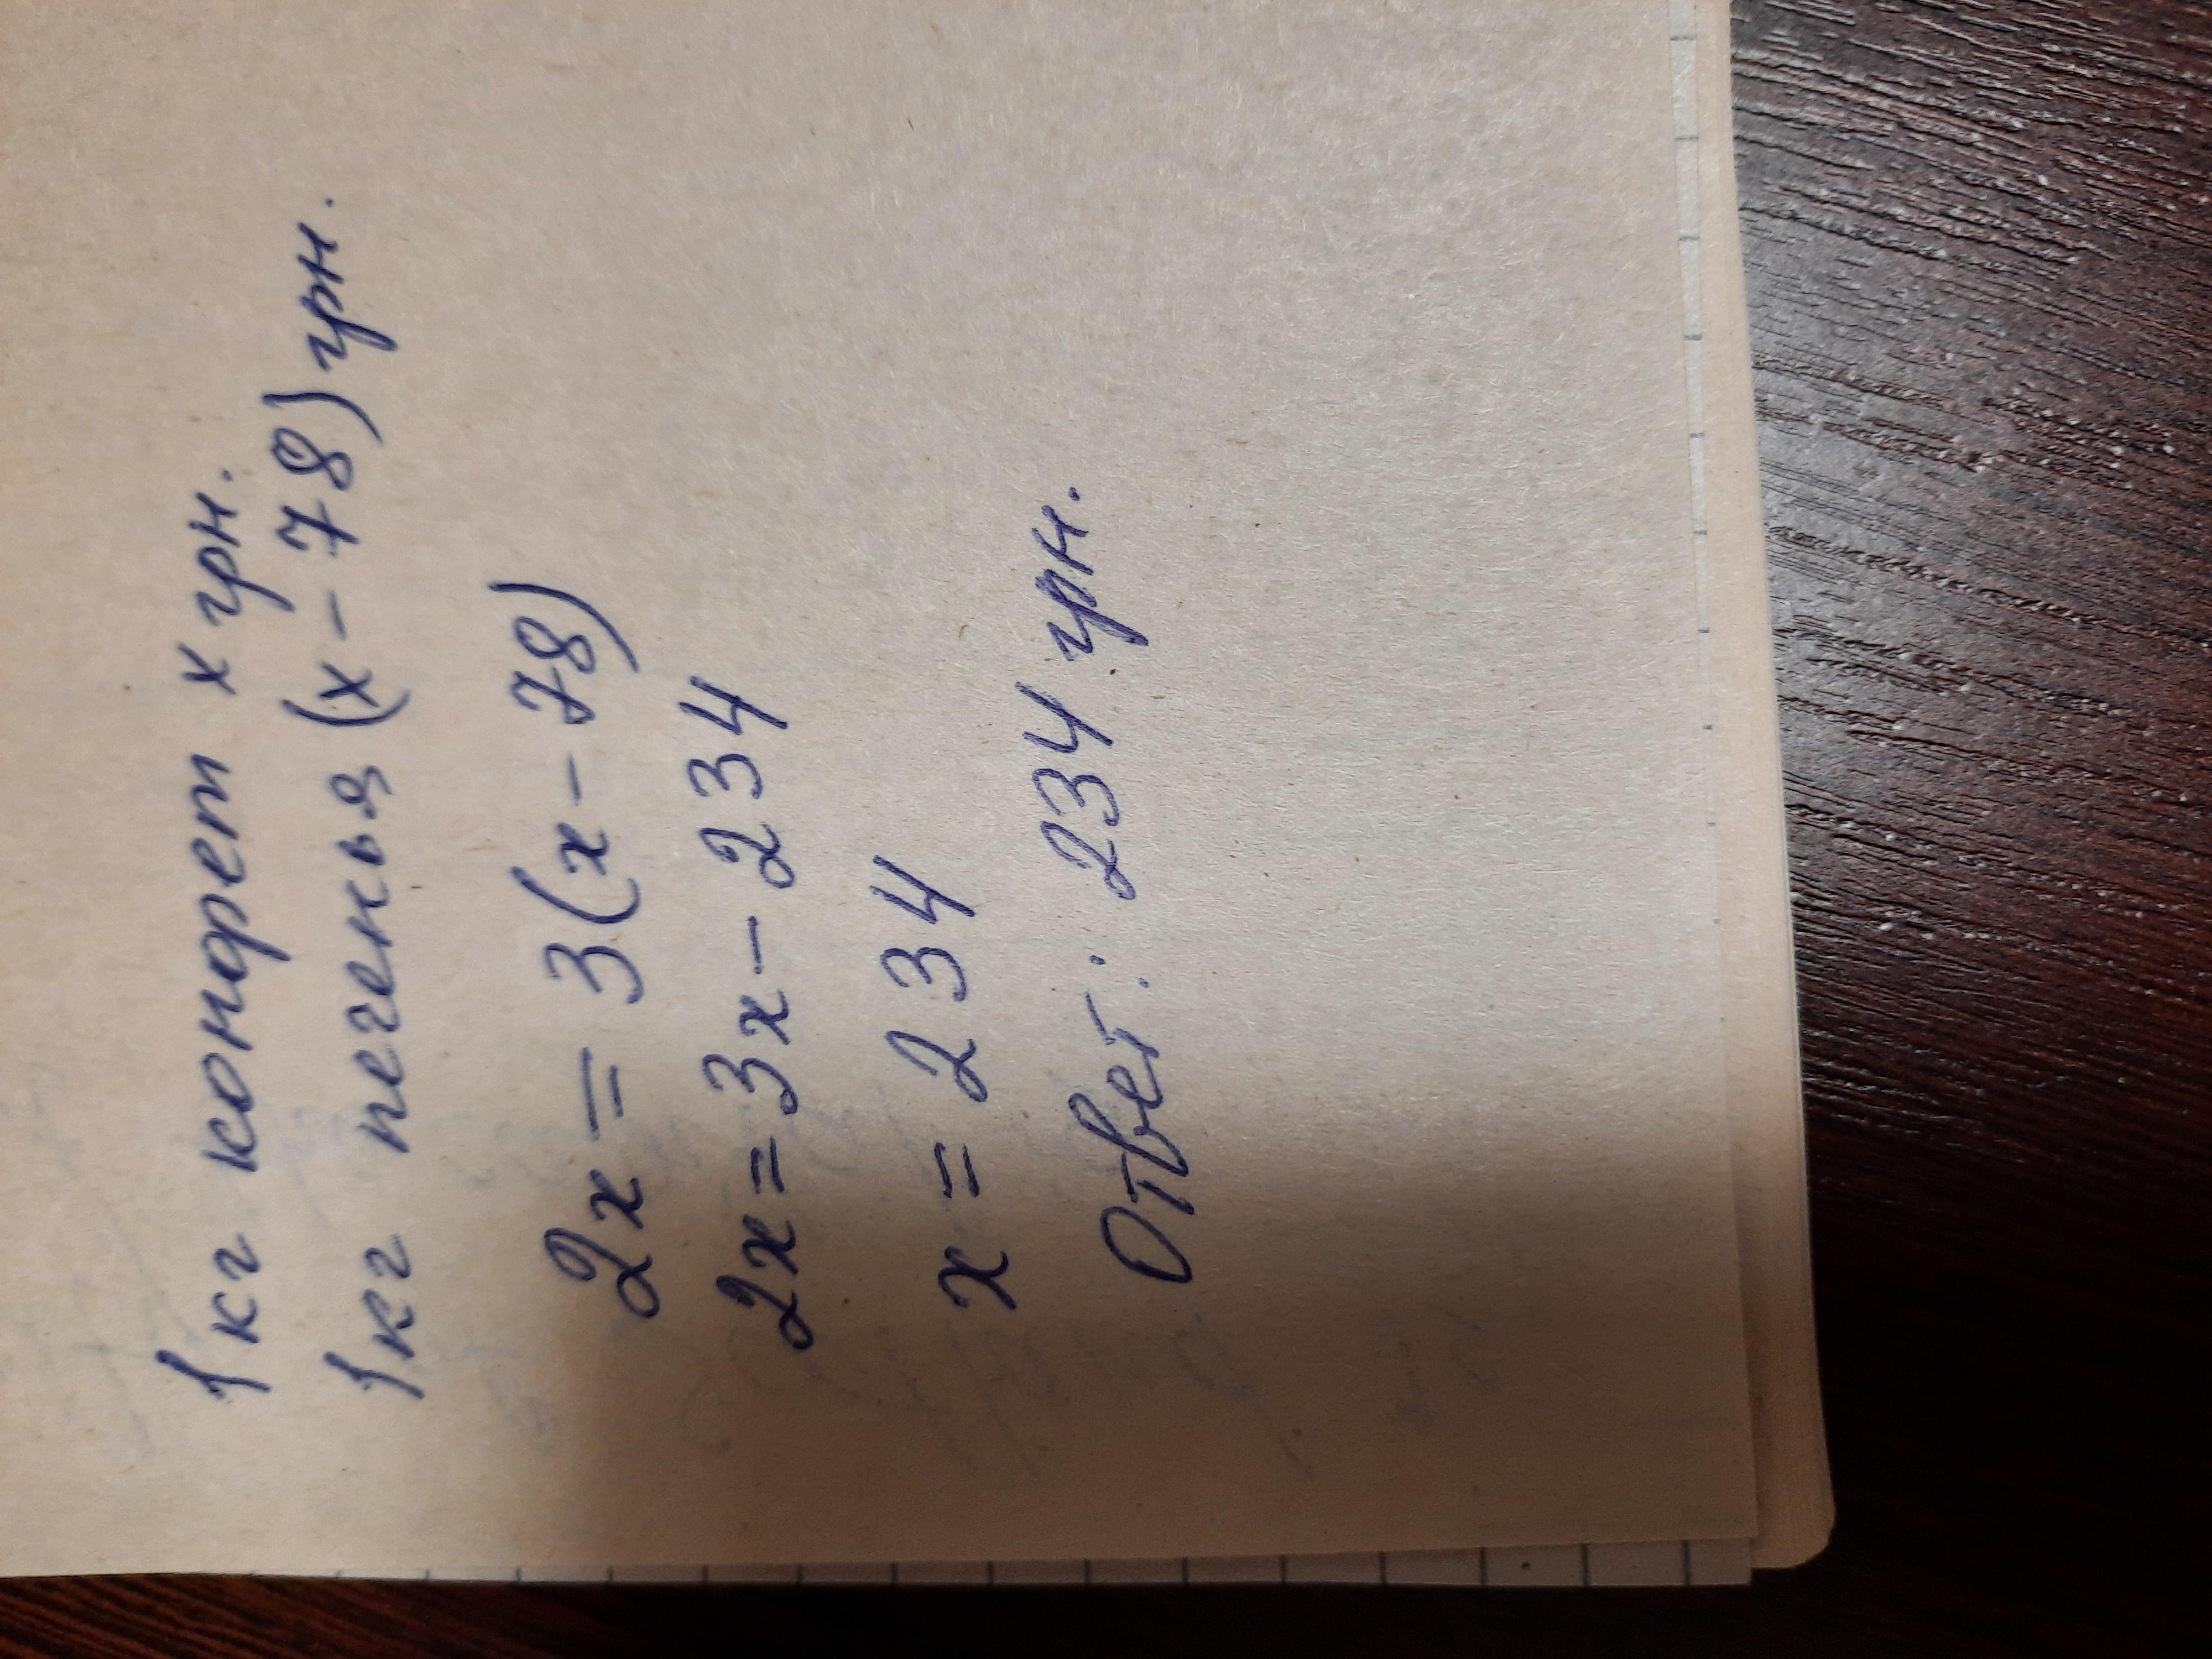 1 кг конфет х грн.
1 кг печенья (х - 78) грн.
2х = 3(х - 78)
2х = 3х - 234
х = 234
Ответ: 234 грн.